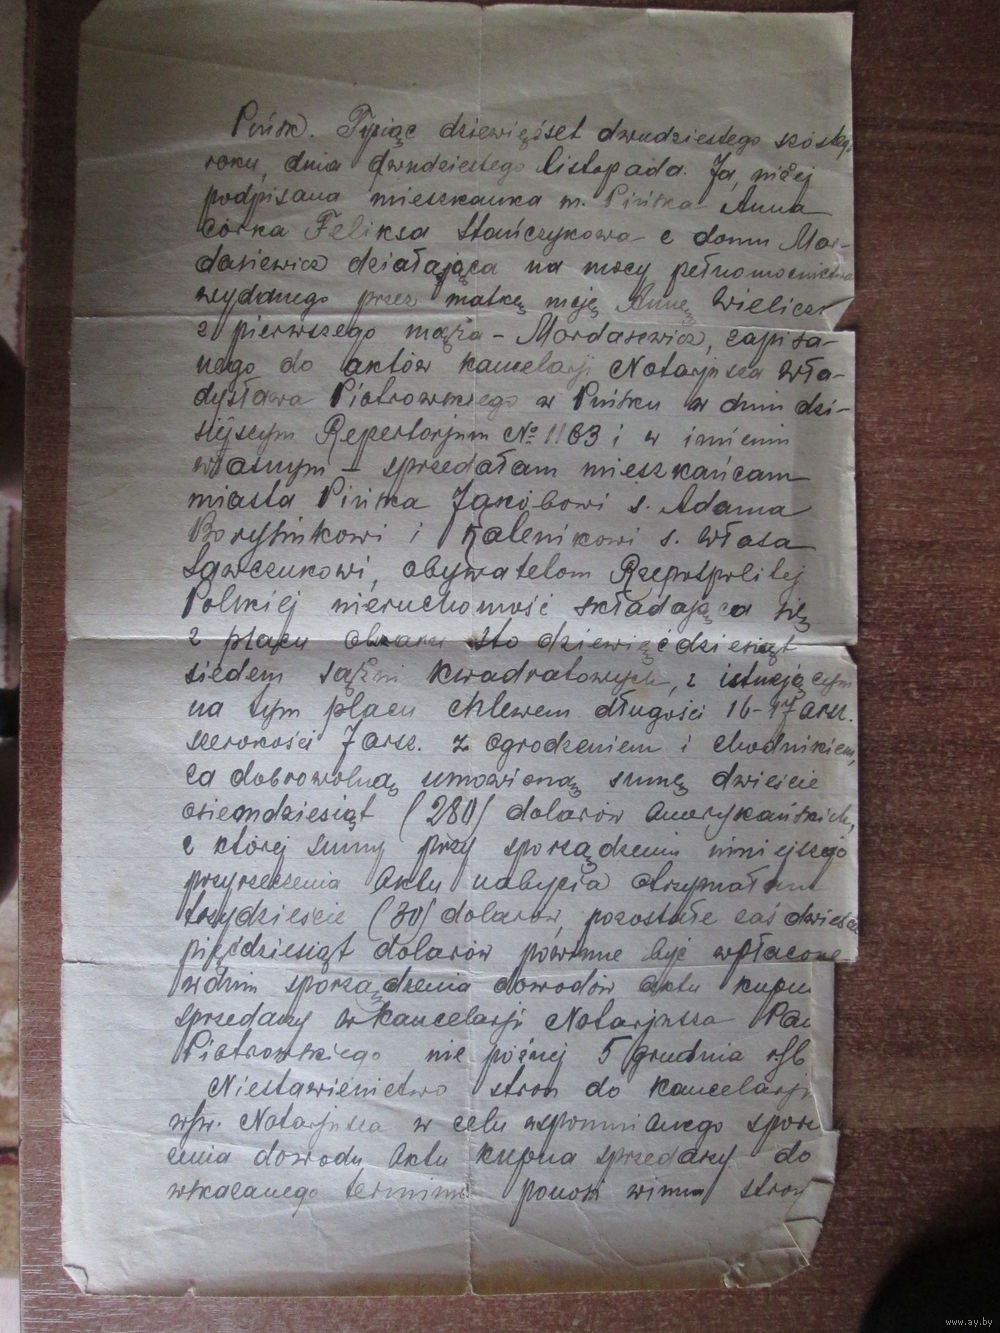 Pińsk. Tysiąc dziewięćset dwudziestego szósteg
roku, dnia dwudziestego listopada. Ja, niżej
podpisana mieszkanka m. Pińska Anna
córka Feliksa Stańczykowa z domu Mor-
dasiewicz działająca na mocy pełnomocnictwa
wydanego przez matkę moję Annę Wielicz
z pierwszego męża - Mordasewicz, zapisa-
nego do aktów kancelarji Notarjusza Wła-
dysława Piotrowskiego w Pińsku w dniu dzi-
siejszym Repertorjum № 1163 i w imieniu
własnym - sprzedałam mieszkańcam
miasta Pińska Jakóbowi s. Adama
Borysiukowi i Kalenikowi s. Własa
Sawczukowi, obywatelom Rzepospolitej
Polskiej nieruchomość składająca się
z placu obszaru sto dziewięćdziesiąt
siedem sążni kwadratowych, z istnejącym
na tym placu chlewem długości 16-17 arsz.
szerokości 7 arsz. z ogrodzeniem i chodnikiem,
za dobrowolną umowioną sumę dwieście
osiemdziesiąt (280) dolarów Amerykańskich,
z której sumy przy sporządzeniu niniejszego
przyrzeczenia Aktu nabycia otrzymałam
trzydzieście (30) dolarów, pozostałe zaś dwieście
pięćdziesiąt dolarów powinne być wpłacone
w dniu sporządzenia dowodów aktu kupna
sprzedazy w kancelarji Notarjusza Pa
Piotrowskiego nie późnej 5 grudnia r/b
Niestawienictwo stron do kancelarji
w/w. Notarjusza w celu wspomnianego sporz
zenia dowodu Aktu kupna sprzedazy do
wskazanego terminu ponosi winna stron
www.ay.by